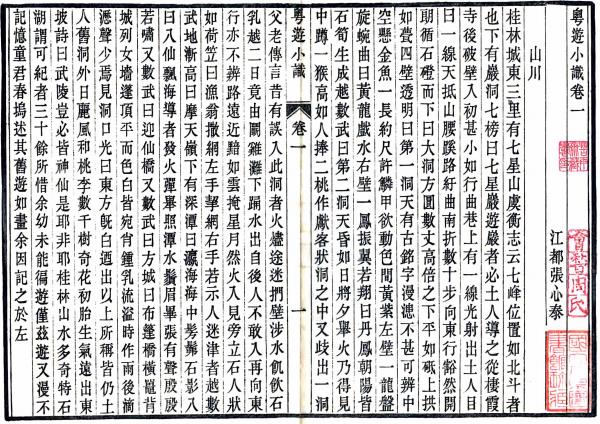 粵遊小識卷一
江都張心泰
山川
桂林城東三里有七星山虞衡志云七峰位置如北斗者
也下有巖洞七榜曰七星巖遊巖者必土人導之從棲霞
寺後破壁入初甚小如行曲巷上有一線光射出土人目
曰一線天抵山腰蹊路紆曲南折數十步向東行豁然開
朗循石磴而下曰大洞方圓數丈高倍之下平如砥上拱
如甍四壁透明曰第一洞天有古銘字漫滅不甚可辨中
空懸金魚一長約尺許鱗甲欲動色間黃紫左壁一龍盤
旋蜿曲曰黃龍戲水右壁一鳳振翼若翔曰丹鳳朝陽皆
石筍生成越數武曰第二洞天昏如日將夕舉火乃得見
中蹲一猴高如人捧二桃作獻客狀洞之中又歧出一洞
粵遊小識
卷一
一
父老傳言昔有誤入此洞者火盡途迷捫壁涉水飢飲石
乳越二日竟由鬭雞灘下踊水出自後人不敢入再向東
行亦不辨路遠近黯如雲掩星月然火入見旁立石人狀
如荷笠曰漁翁撒網左手擎網右手若示人迷津者越數
武地漸高曰摩天嶺下有深潭曰瀛海海中髣髴石影八
曰八仙飄海導者發火彈畢照潭水鬚眉畢張有聲殷殷
若嘯又數武曰迎仙橋又數武曰方城曰布篷橋橫竈背
城列女墻蓬頂平而色白皆宛肖鍾乳流溢時作雨後滴
漉聲少焉見洞口光曰東方旣白迺出以上所稱皆仍土
人舊洞外日麗風和桃李數千樹奇花初胎生氣遠出東
坡詩曰武陵豈必皆神仙是耶非耶桂林山水多奇特石
湖謂可紀者三十餘所惜余幼未能徧遊僅玆遊又漫不
記憶童君春塢述其舊遊如畫余因記之於左